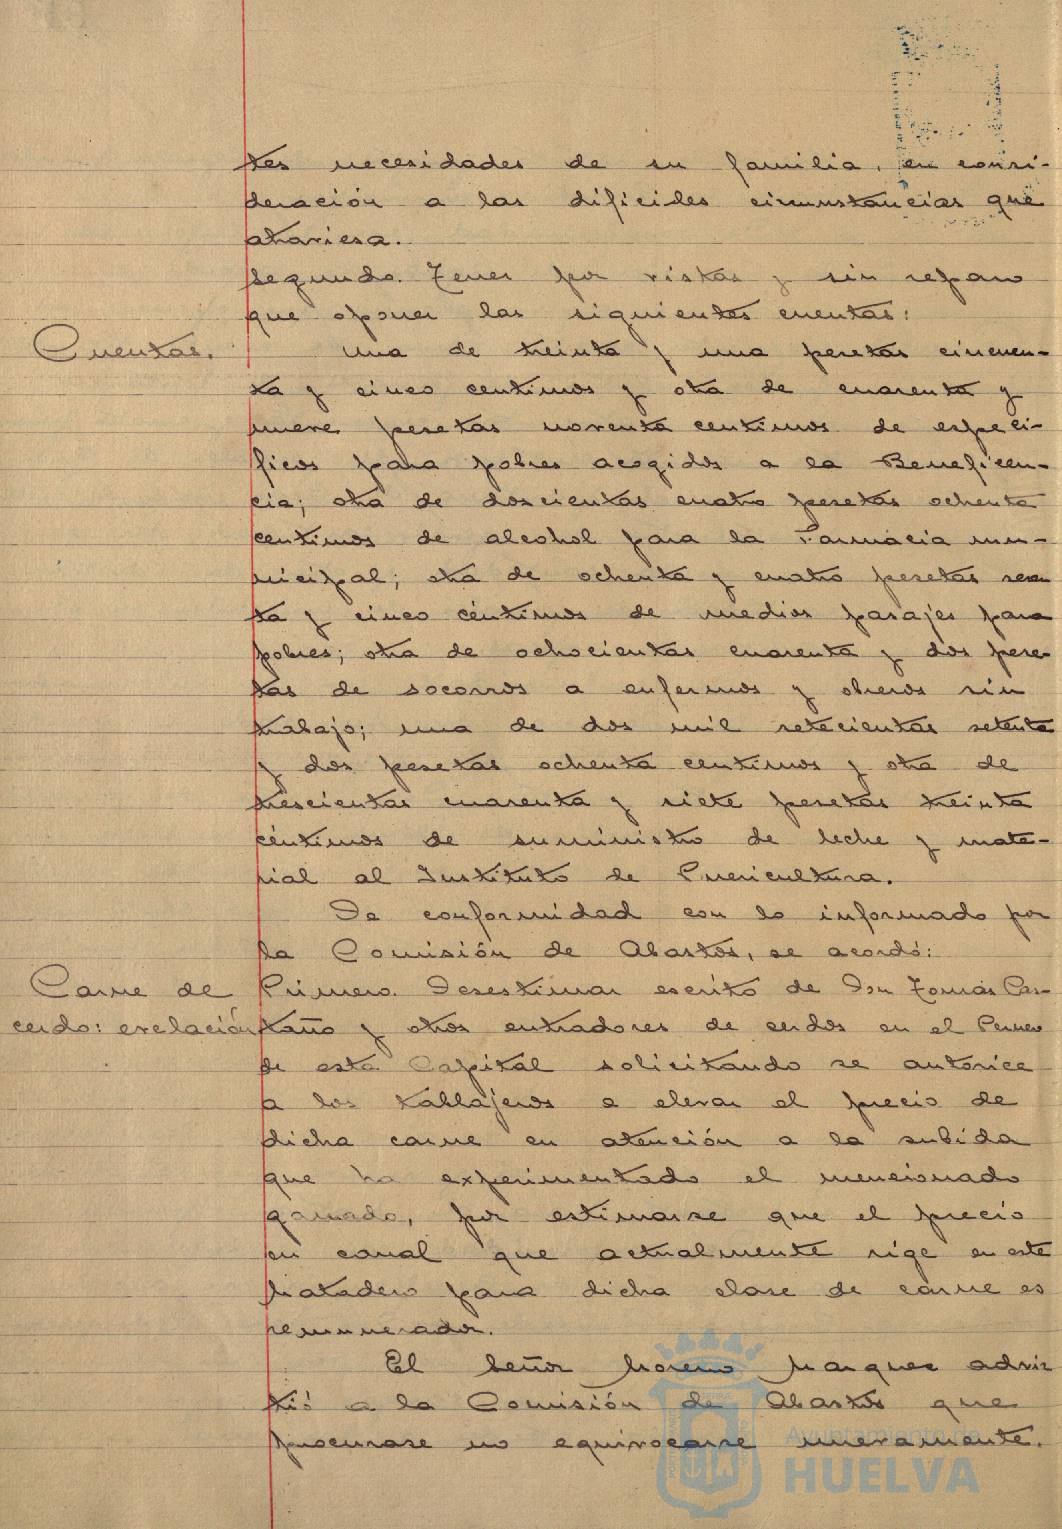 tes necesidades de su familia, en consi-
deración a las dificiles circunstancias que
atraviesa.
Segundo. Tener por vistas y sin reparo
que oponer las siguientes cuentas:
Cuentas.
Una de treinta y una pesetas cincuen-
ta y cinco centimos y otra de cuarenta y
nueve pesetas noventa centimos de especi-
ficos para pobres acogidos a la Beneficen-
cia; otra de doscientas cuatro pesetas ochenta
centimos de alcohol para la Farmacia mu-
nicipal; otra de ochenta y cuatro pesetas sesen
ta y cinco céntimos de medios pasajes para
pobres; otra de ochocientas cuarenta y dos pese
tas de socorros a enfermos y obreros sin
trabajo; una de dos mil setecientas setenta
y dos pesetas ochenta centimos y otra de
trescientas cuarenta y siete pesetas treinta
céntimos de suministro de leche y mate-
rial al Instituto de Puericultura.
De conformidad con lo informado por
la Comisión de Abastos, se acordó:
Carne de
cerdo: exelación
Primero. Desestimar escrito de Don Tomás Cas-
taño y otros entradores de cerdos en el
de esta Capital solicitando se autorice
a los tablajeros a elevar el precio de
dicha carne en atención a la subida
que ha experimentado el mencionado
ganado, por estimarse que el precio
en canal que actualmente rige en este
Matadero para dicha clase de carne es
remunerador.
El Señor Moreno Marquez advir
tió a la Comisión de Abastos que
procurase no equivocarse nuevamente.
Ayuntamiento de
HUELVA